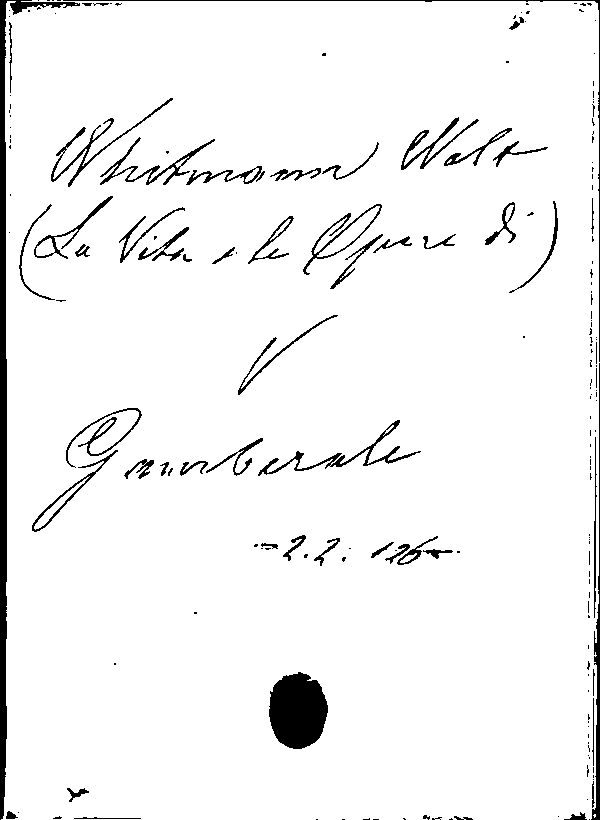 Whitmann Walt
(La Vita e le Opere di)
V
Gamberale
-2.2. 126-